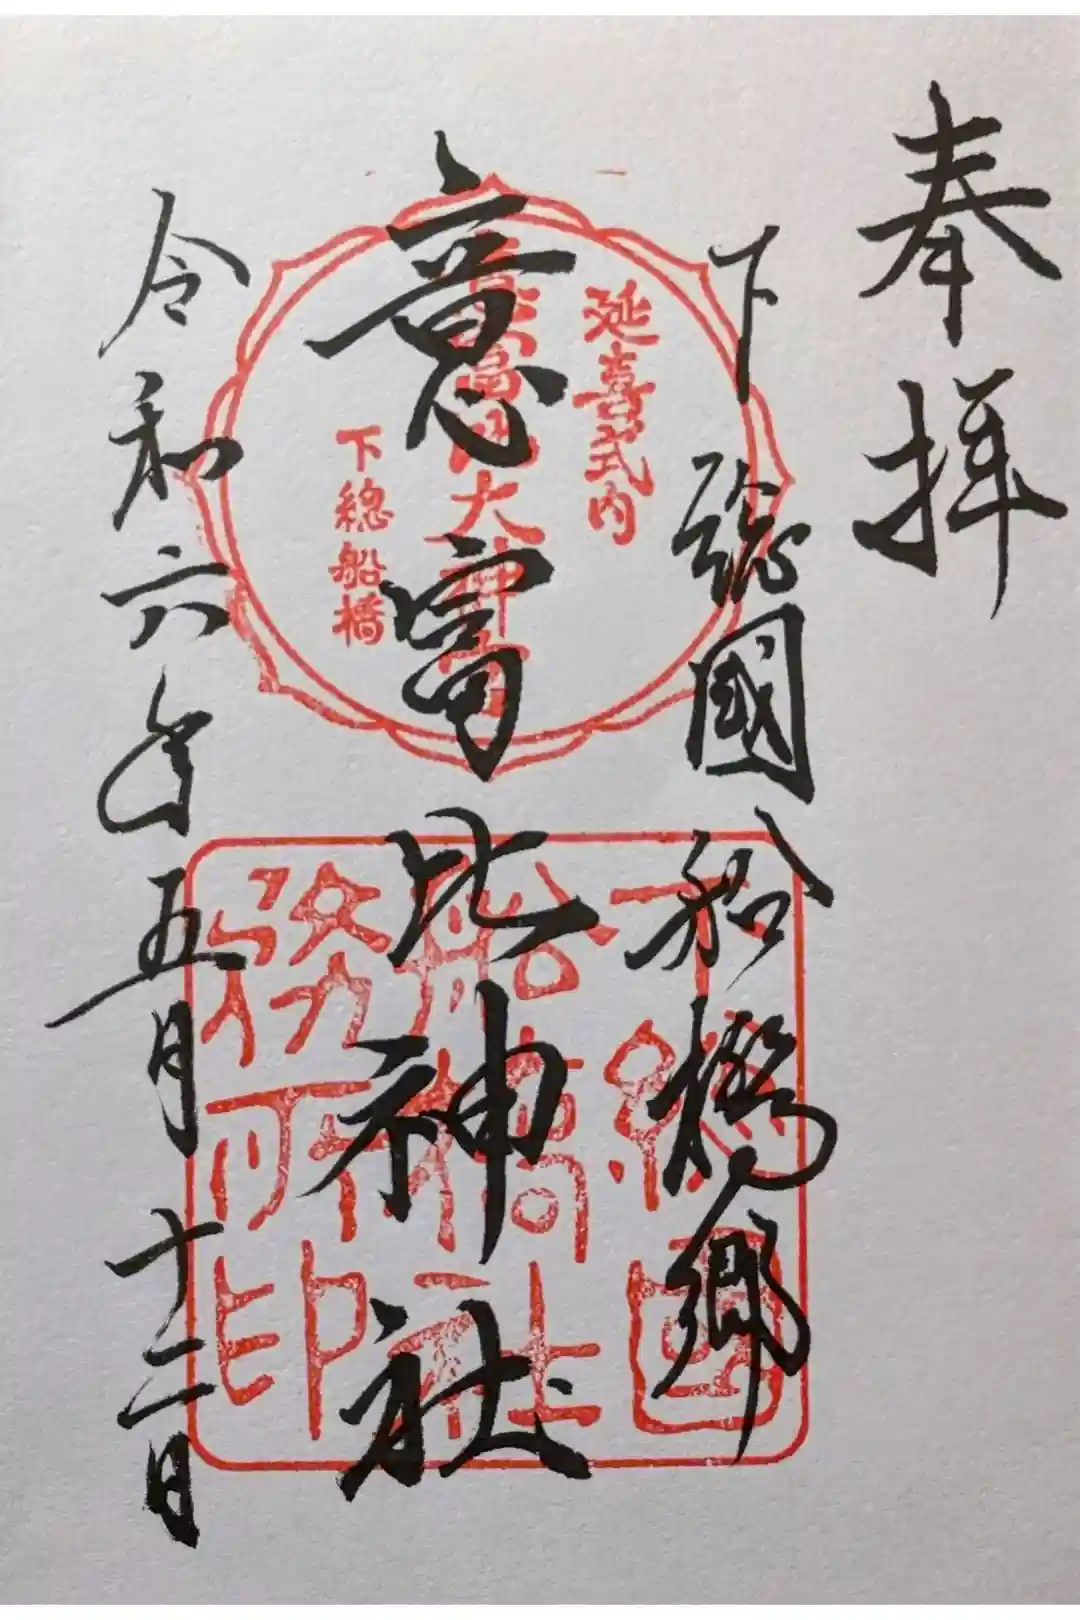 奉拝
下總國船橋郷
意富比神社
令和六年五月十二日
延喜式内
意富比大神宮
下總船橋
下總國
船橋神社
務所印